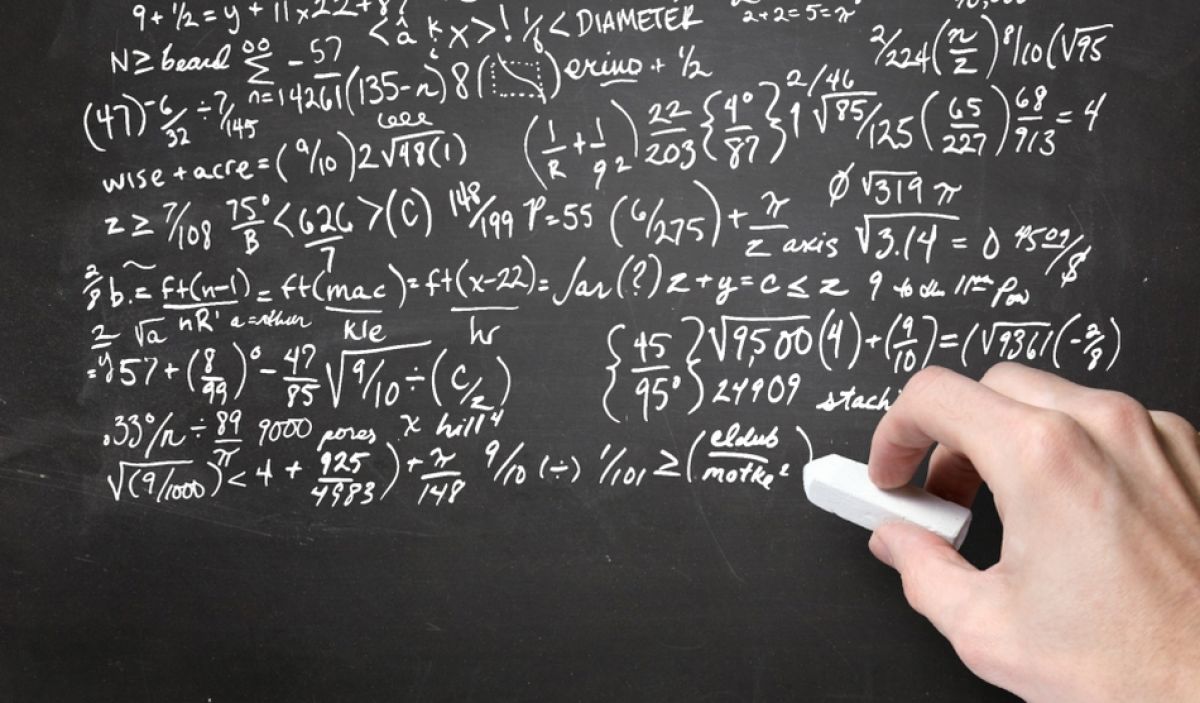 9 + 1/2 = y + 11 x 22 + 8
2+2=5=π
<â k x>! 1/8 < DIAMETER
N ≥ beard ∞ Σ n=1 -57/4261 (135-n) 8 ( ) erino + 1/2
2/224 (π/2) 8/10 (√95
(47) -6/32 ÷ 7/145
(1/R + 1/9 2) 22/203 {4°/87} 2/46 1 √85/125 (65/227) 68/913 = 4
wise + acre = (9/10) 2 √48(1)
Ø √319 π
z ≥ 7/108 75°/B < 626/7 > (C) 148/199 P=55 (6/275) + π/z axis √3.14 = 0 450 9/$
2/8 b. = ft(n-1)/nR' = ft(mac)/kle = ft(x-22)/hr = far(?) z + y = c ≤ z 9 to the 11th Pow
2 √a
= y 57 + (8/99)° - 47/85 √9/10 ÷ (c/z)
{45/95°} √9,500 (4) + (9/10) = (√9361 (-2/8)
24909 stach
.33°/n ÷ 89/π 9000 pores x hill 4
√(9/1000) < 4 + 925/4983) + π/148 9/10 (÷) 1/101 ≥ (eldub/motke 2)